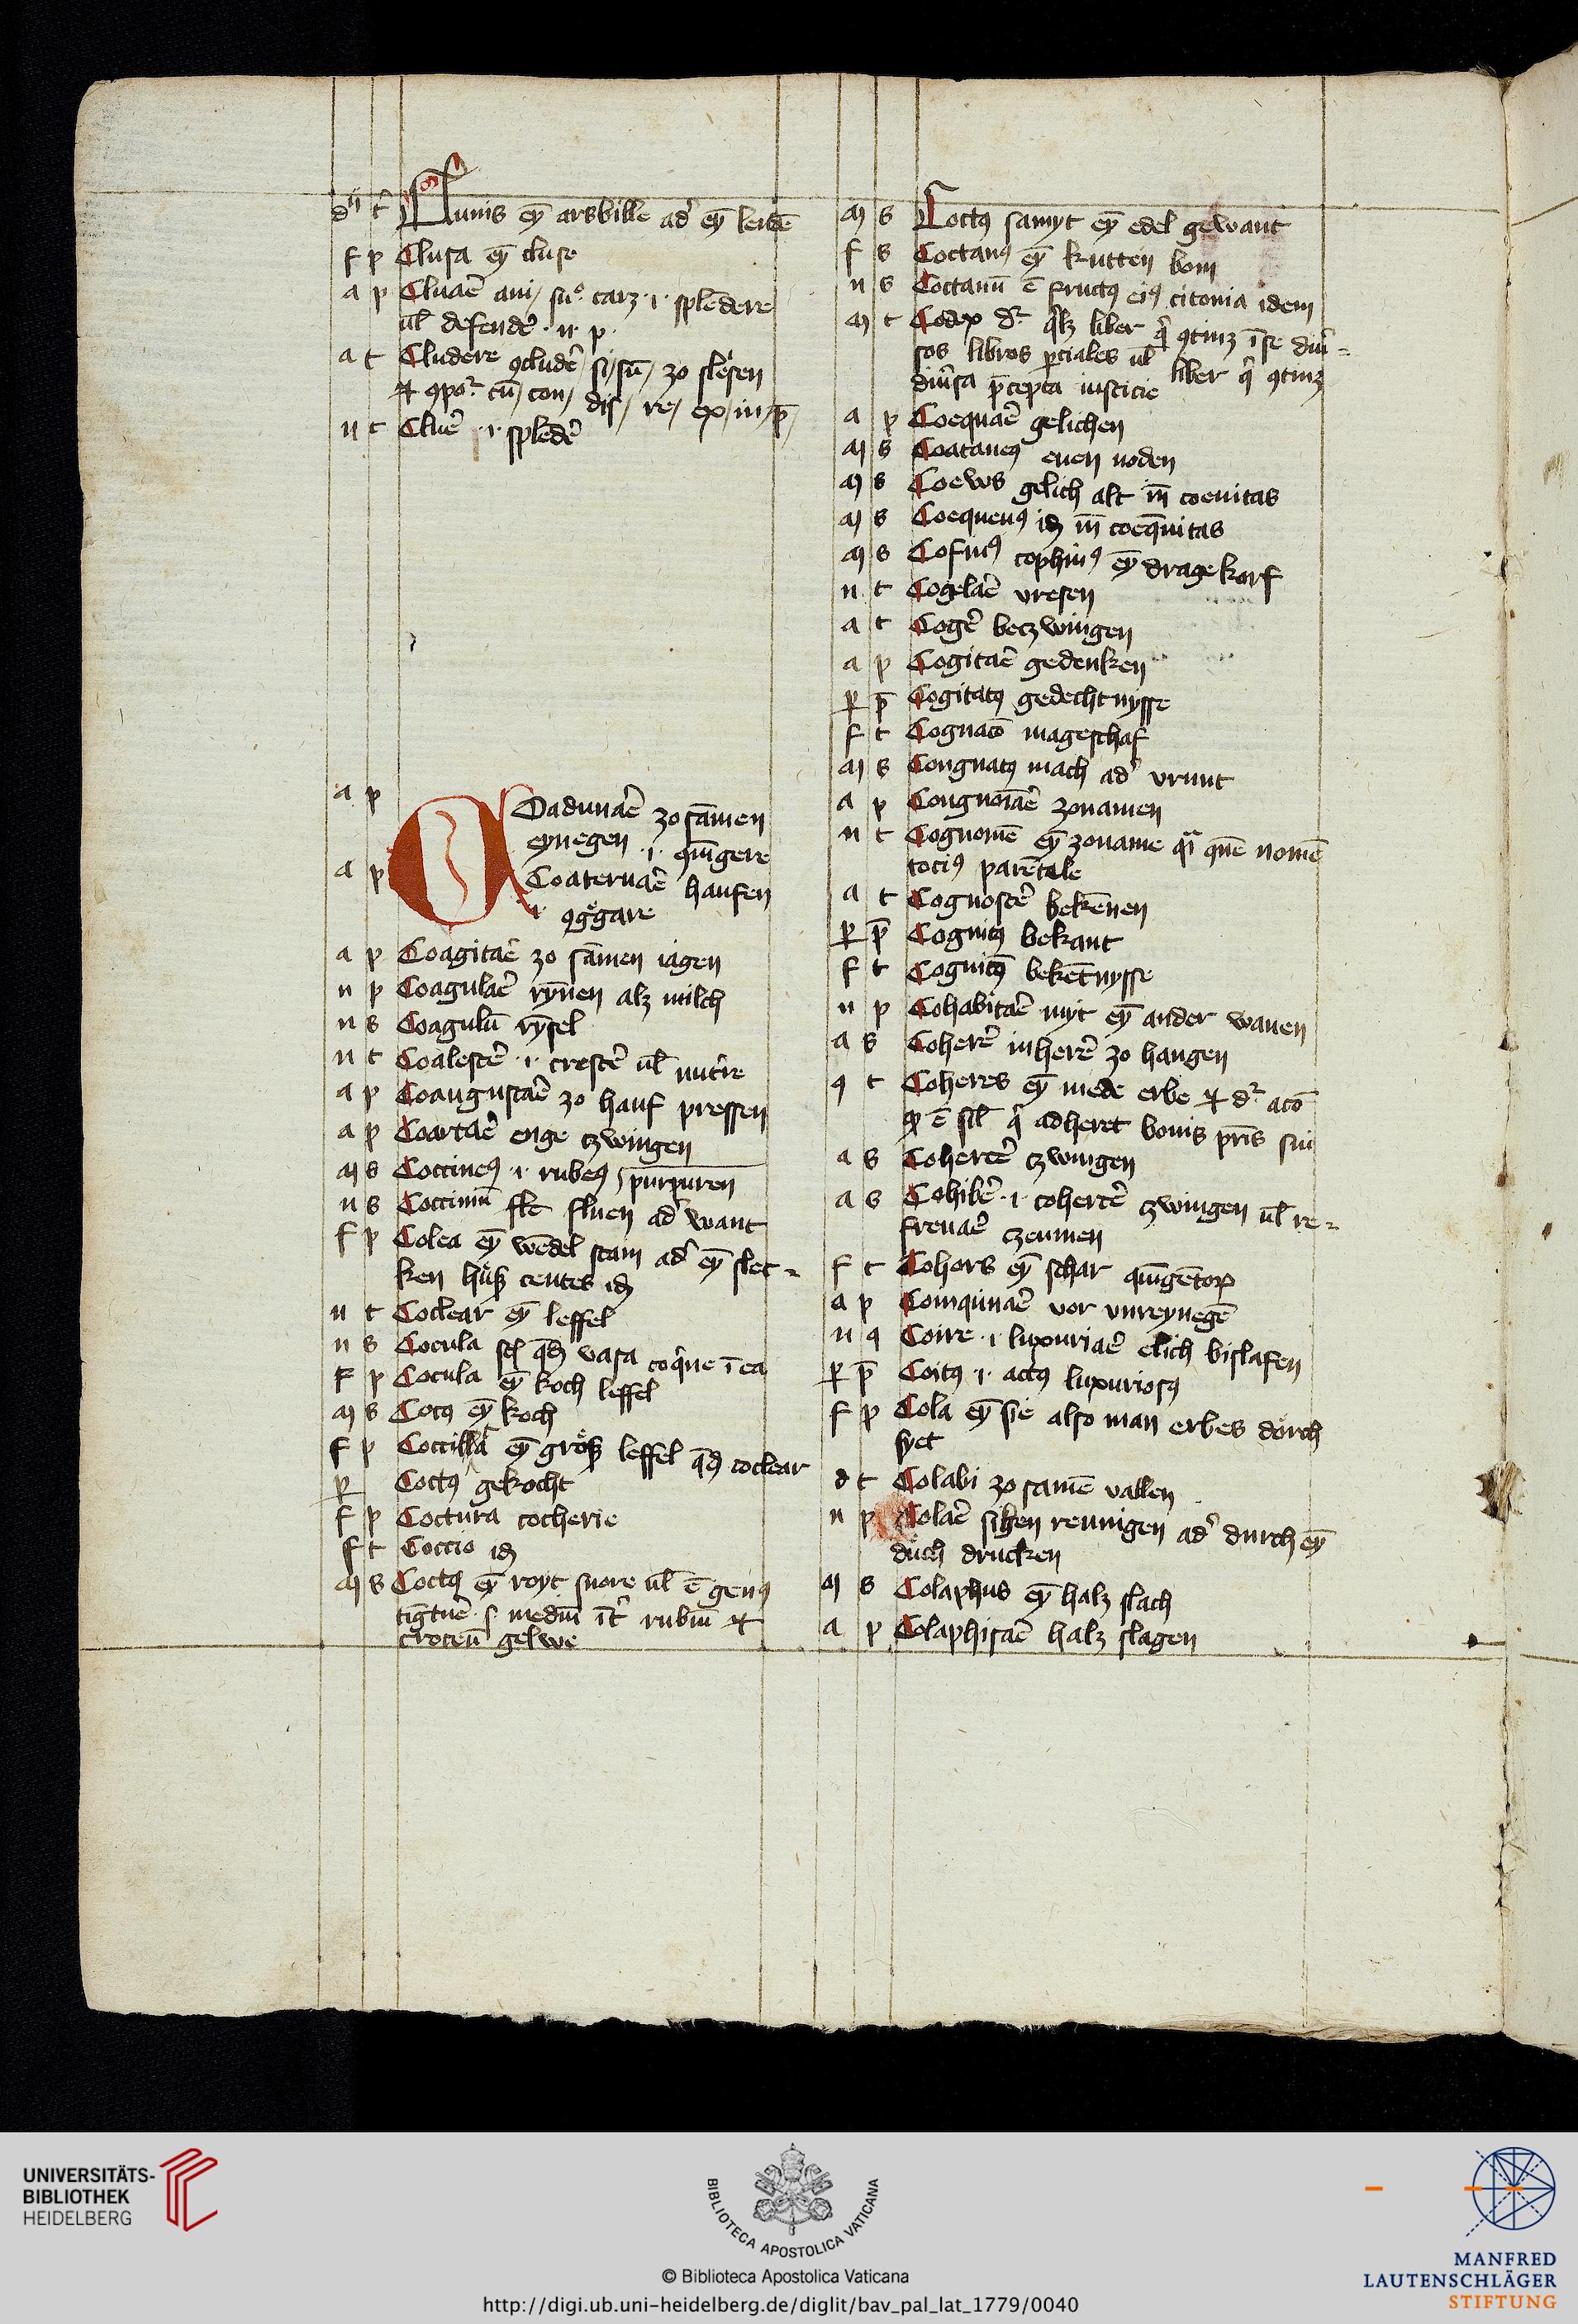 dñ t̾ Clunis eȳ arsbille ad̾ eȳ lendē
f p Clusa eȳ cluse
a p Cluaē aui / carꝫ ·i· splēdere
ul̄ defendē · n · p ·
a t Cludere ꝯcludē / si / sū / zo slesen
cū / con / dis / re / ex / in / p̄ /
n t Cluē ·i· splēdē
a p Coadunaē zo sāmen
eynegen ·i· ꝯiūgere
a p Coateruaē haufen
·i· ꝯg̾gare
a p Coagitaē zo sāmen iagen
n p Coagulaē rȳnen alz milch
n s Coagulū rȳsel
n t Coalescē ·i· crescē ul̄ nutrire
a p Coangustaē zo hauf pressen
a p Coartaē enge tzwingen
m s Coccineꝰ ·i· rubeꝰ / purpuren
n s Coccinū ad̾ want
f p Coclea eȳ wēdel stain ad̾ eȳ slec-
ken hüß
n t Coclear eȳ leffel
n s Cocula vasa
f p Cocula eȳ koch leffel
m s Cocꝰ eȳ koch
f p Coccilla eȳ groß leffel coclear
p̱ Coctꝰ gekocht
f p Coctura cocherie
f t Coccio iđ
m s Coctꝰ eȳ royt snore ul̄ ē genꝰ
rubiū et
croceū gelwe
m s Coctꝰ samyt eȳ edel gewant
f s Coctanꝰ eȳ kutten bom
n s Coctanū ē fructꝰ eiꝰ citonia idem
m t Codex liber ꝯtinꝫ ī se diu̾-
sos libros ul̄ liber ꝯtinꝫ
diu̾sa p̄cepta iusticie
a p Coequaē gelichen
m s Coataneꝰ euen
m s Coevvs gelich alt coeuitas
m s Coequeuꝰ iđ coeq̄uitas
m s Cofinꝰ cophinꝰ eȳ drage korf
n t Cogelaē vresen
a t Cogē betzwingen
a p Cogitaē gedenken
p̱ p̄ Cogitatꝰ gedechtnysse
f t Cognacō mageschaf
m s Congnatꝰ mach ad̾ vrunt
a p Congnoiāē zonamen
n t Cognomē eȳ zoname nomē
tociꝰ parētele
a t Cognoscē bekēnen
p̱ p̄ Cognitꝰ bekant
f t Cognicō bekētnysse
n p Cohabitaē myt eȳ ander wanen
a s Coherē inherē zo hangen
q t Coheres eȳ mede erbe
adheret bonis pr̄is sui
a s Cohercē tzwingen
a s Cohibē ·i· cohercē tzwingen ul̄ re-
frenaē tzeumen
f t Cohors eȳ schar
a p Coinquinaē vor vnreynegē
n q Coire ·i· luxuriaē elich bislafen
p̱ p̄ Coitꝰ ·i· actꝰ luxuriosꝰ
f p Cola eȳ sie also man erbes dorch
syet
d t Colabi zo samē vallen
n p Colaē sihen reunigen ad̾ durch eȳ
duch drucken
m s Colaphus eȳ halz slach
a p Colaphisaē halz slagen
UNIVERSITÄTS-
BIBLIOTHEK
HEIDELBERG
BIBLIOTECA APOSTOLICA VATICANA
© Biblioteca Apostolica Vaticana
http://digi.ub.uni-heidelberg.de/diglit/bav_pal_lat_1779/0040
MANFRED
LAUTENSCHLÄGER
STIFTUNG